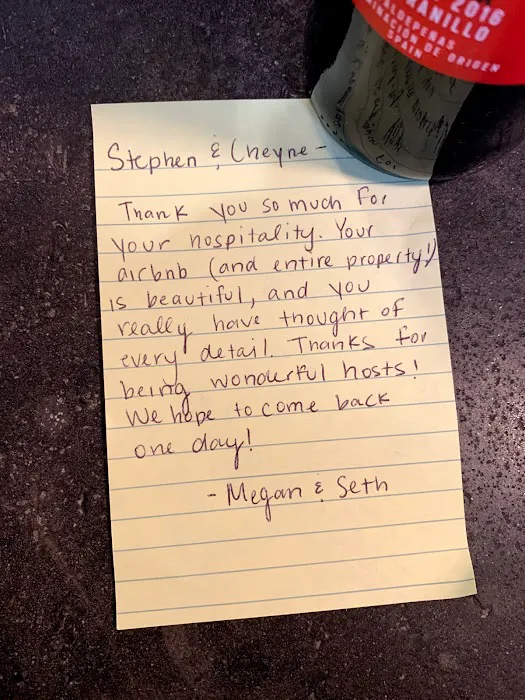 2016
ANILLO
VALDEPEÑAS
SPAIN DE ORIGEN
Stephen & Cheyne -
Thank you so much for
your hospitality. Your
airbnb (and entire property!)
is beautiful, and you
really have thought of
every detail. Thanks for
being wonderful hosts!
We hope to come back
one day!
- Megan & Seth